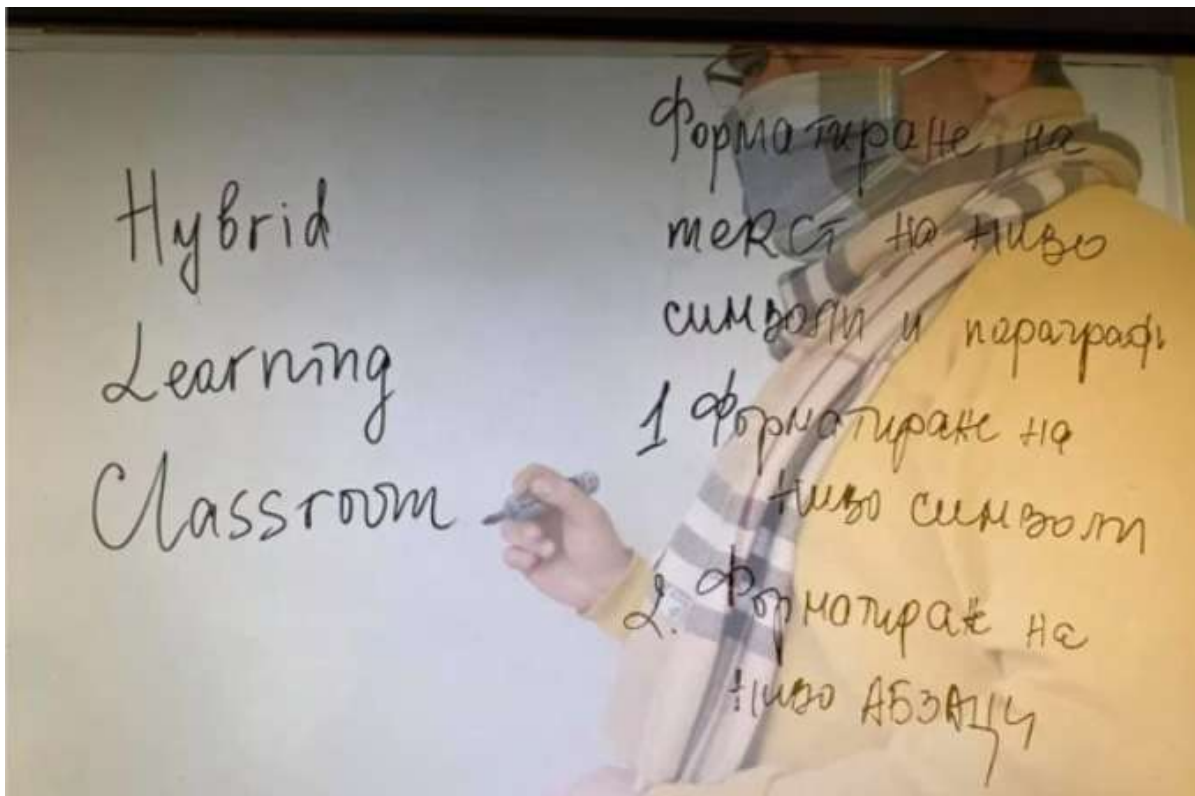 Hybrid
Learning
Classroom
Форматиране на
текст на ниво
символи и параграфи
1 Форматиране на
ниво символи
2. Форматиране на
ниво АБЗАЦИ